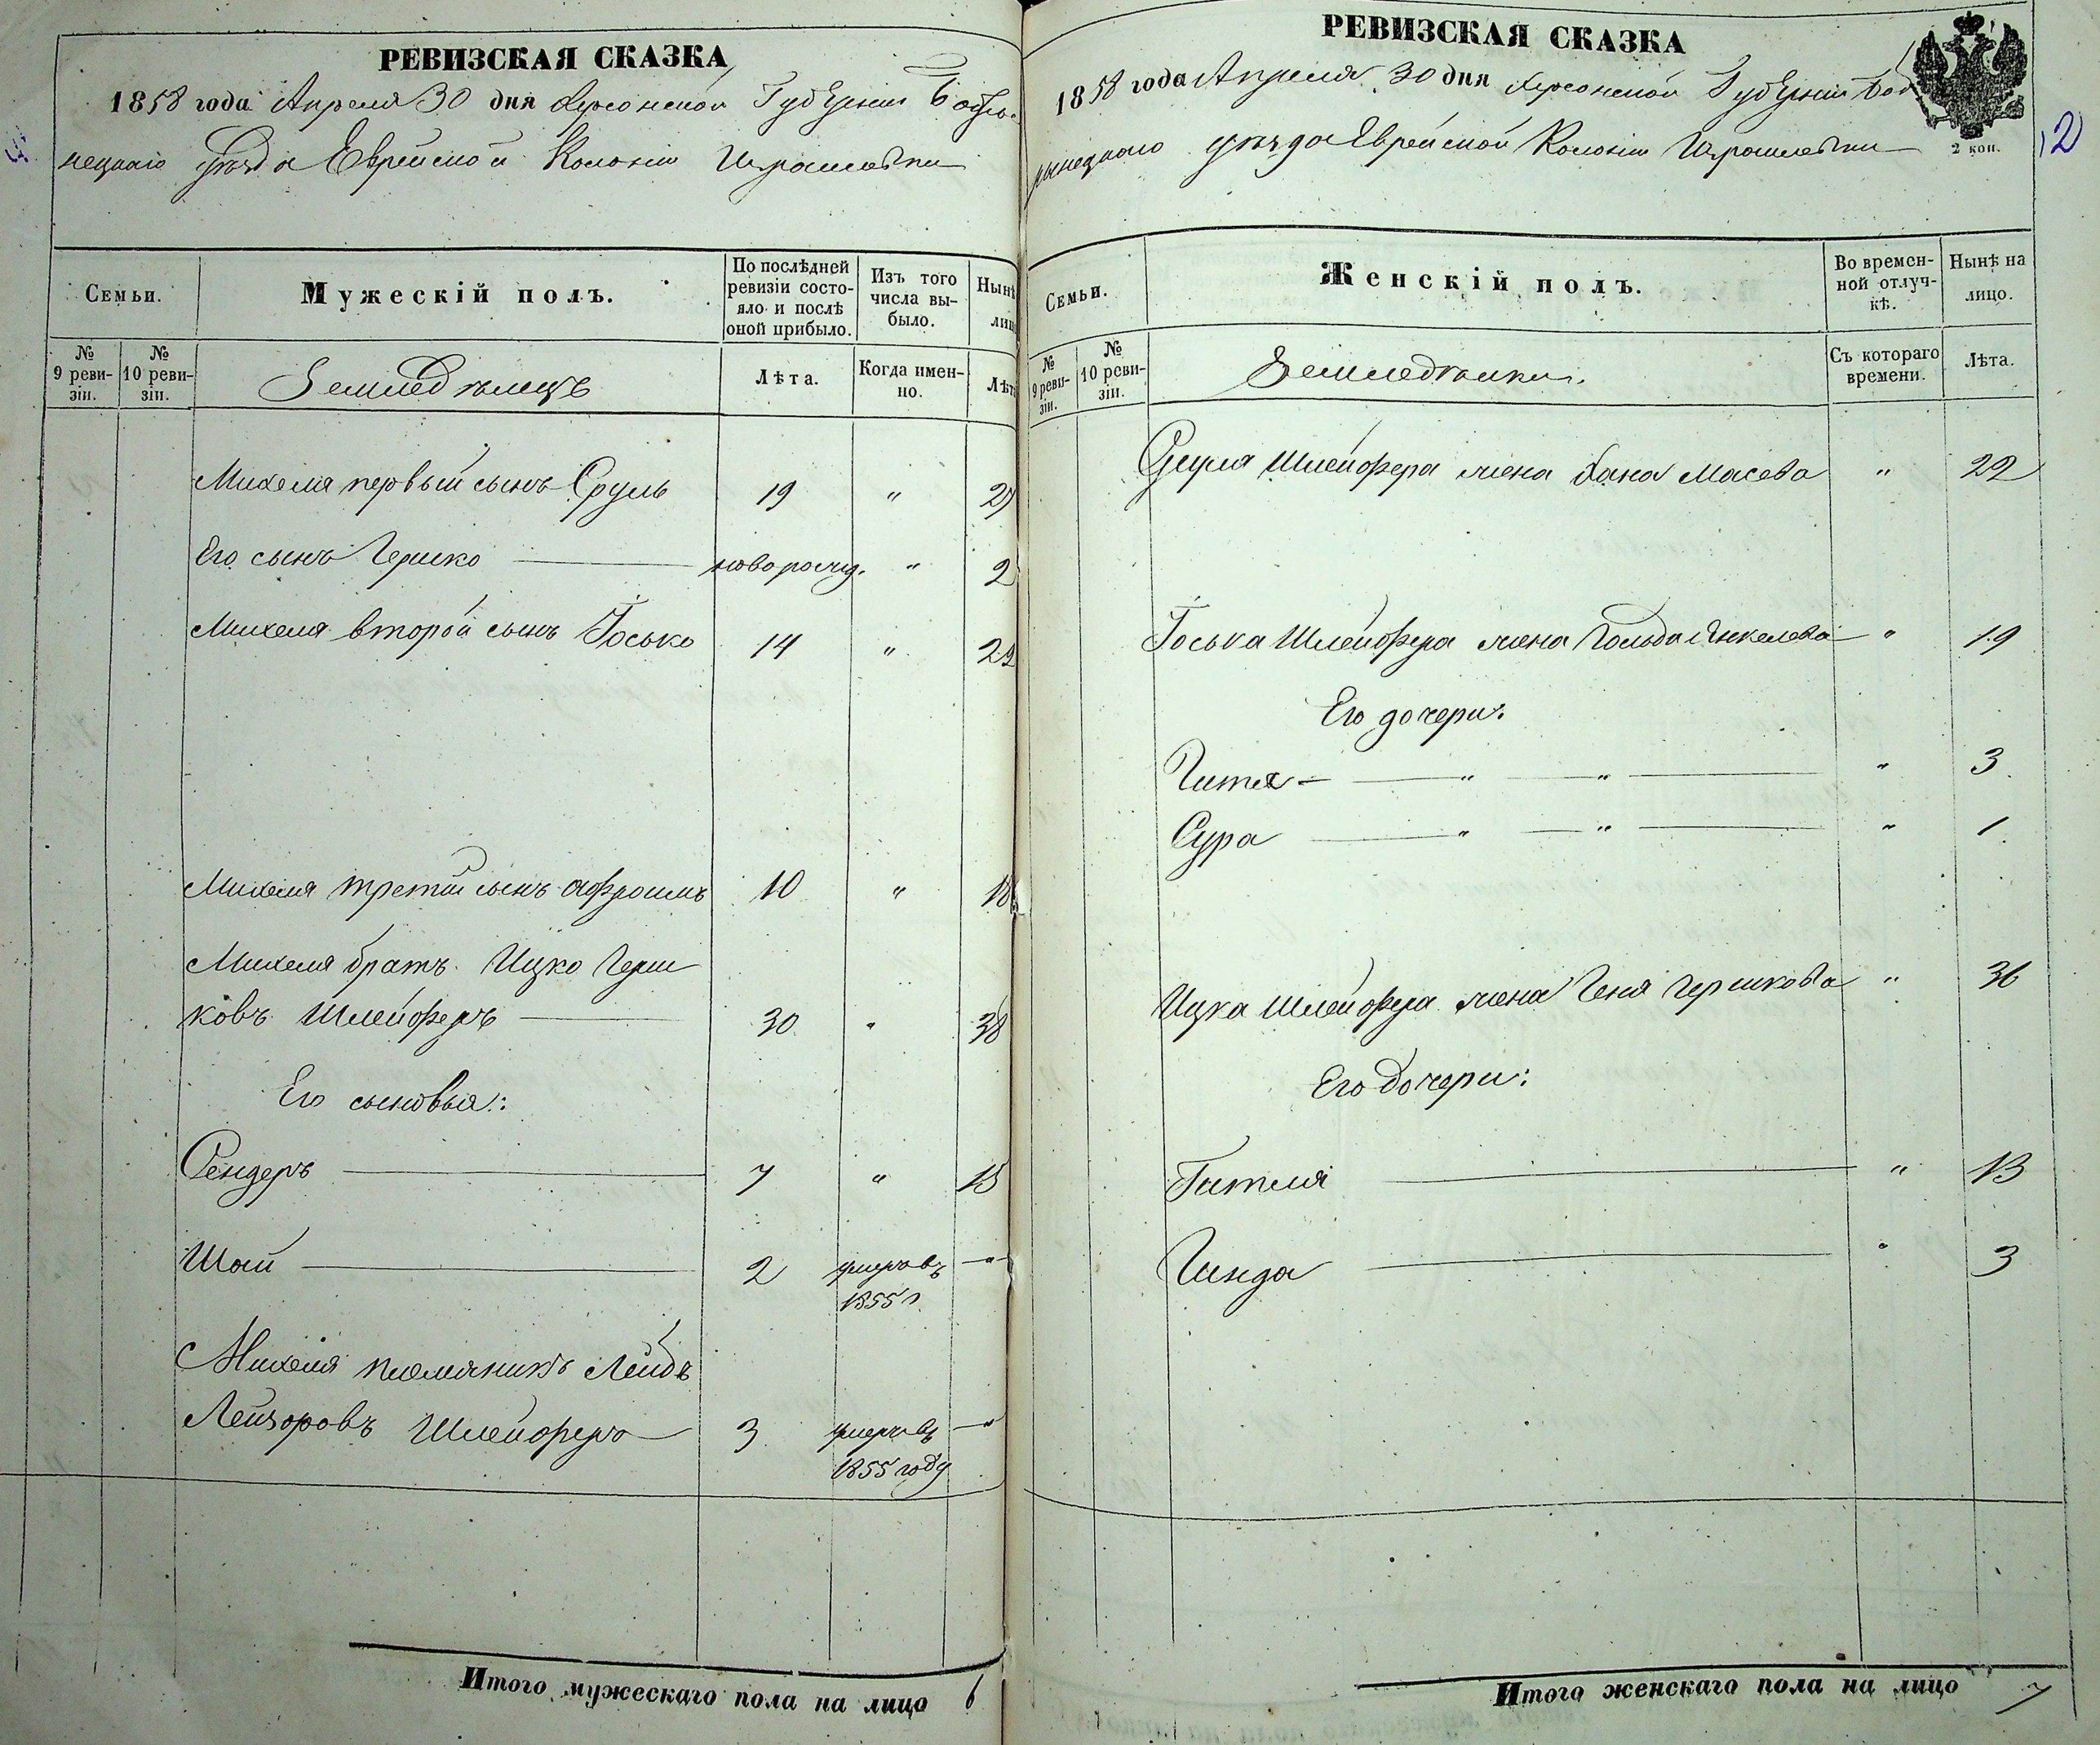 РЕВИЗСКАЯ СКАЗКА
1858 года Апреля 30 дня Херсонской Губерніи Бобры-
нецкаго уѣзда Еврейской Колоніи Израилевки
Семьи.
Мужескій полъ.
По послѣдней ревизіи состо-яло и послѣ оной прибыло.
Изъ того числа вы-было.
Нынѣ
лиц
№ 9 реви-зіи.
№ 10 реви-зіи.
Земледѣлецъ
Лѣта.
Когда имен-но.
Лѣта
Михеля первый сынъ Сруль 19 " 27
Его сынъ Гершко — новорожд. " 2
Михеля второй сынъ Іосько 14 " 22
Михеля третій сынъ Афроимъ 10 " 18
Михеля братъ Ицко Герш
ковъ Шлейферъ — 30 " 38
Его сыновья:
Сендеръ — 7 " 15
Шай — 2 умеръ въ — "
1855 г.
Михеля племяникъ Лейбъ
Лейзоровъ Шлейферъ 3 умеръ въ — "
1855 году
Итого мужескаго пола на лицо 6
РЕВИЗСКАЯ СКАЗКА
1858 года Апреля 30 дня Херсонской Губерніи Боб
рынецкаго уѣзда Еврейской Колоніи Израилевки
2 коп.
12
Семьи.
Женскій полъ.
Во времен-ной отлуч-кѣ.
Нынѣ на лицо.
№ 9 реви-зіи.
№ 10 реви-зіи.
Земледѣлки.
Съ котораго времени.
Лѣта.
Сруля Шлейфера жена Хана Масева " 22
Іоська Шлейфера жена Гольда Янкелева " 19
Его дочери:
Гитя — " — " — " 3
Сура — " — " — " 1
Ицка Шлейфера жена Геня Гершкова " 36
Его дочери:
Гителя — " 13
Гинда — " 3
Итого женскаго пола на лицо 7